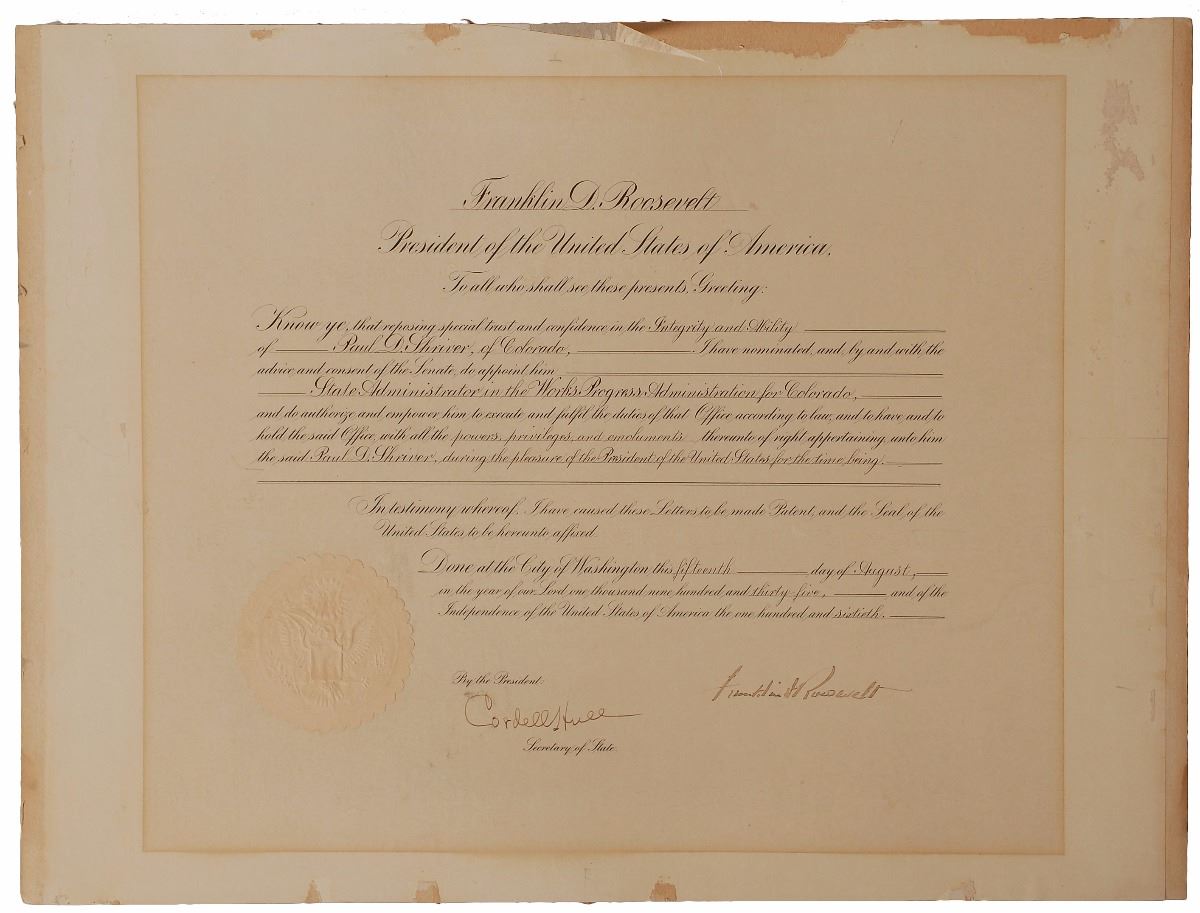 Franklin D. Roosevelt
President of the United States of America.
To all who shall see these presents, Greeting:
Know ye, that reposing special trust and confidence in the Integrity and Ability
of Paul D. Shriver, of Colorado, I have nominated, and, by and with the
advice and consent of the Senate, do appoint him
State Administrator in the Works Progress Administration for Colorado,
and do authorize and empower him to execute and fulfil the duties of that Office according to law, and to have and to
hold the said Office, with all the powers, privileges, and emoluments thereunto of right appertaining, unto him
the said Paul D. Shriver, during the pleasure of the President of the United States for the time being.
In testimony whereof, I have caused these Letters to be made Patent, and the Seal of the
United States to be hereunto affixed.
Done at the City of Washington this fifteenth day of August,
in the year of our Lord one thousand nine hundred and thirty five, and of the
Independence of the United States of America the one hundred and sixtieth.
By the President:
Franklin D Roosevelt
Cordell Hull
Secretary of State.